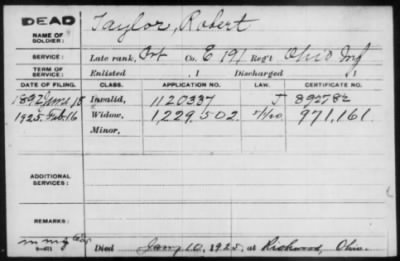 DEAD
NAME OF SOLDIER: Taylor, Robert
SERVICE: Late rank, Pvt Co. E 191 Reg't Ohio Inf
TERM OF SERVICE: Enlisted , 1 Discharged , 1
DATE OF FILING. CLASS. APPLICATION NO. LAW. CERTIFICATE NO.
1892 June 18 Invalid, 1120337 J 892782
1925 Feb. 16 Widow, 1,229,502 971,161
Minor,
ADDITIONAL SERVICES:
REMARKS:
Died Jany 10, 1925, at Richwood, Ohio.